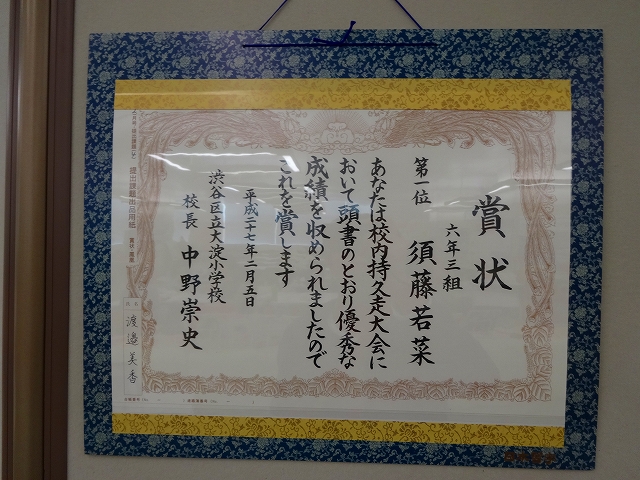 賞状
六年三組
第一位　須藤若菜
あなたは校内持久走大会に
おいて頭書のとおり優秀な
成績を収められましたので
これを賞します
平成二十七年二月五日
渋谷区立大淀小学校
校長　中野崇史
提出課題出品用紙
氏名
渡邉美香